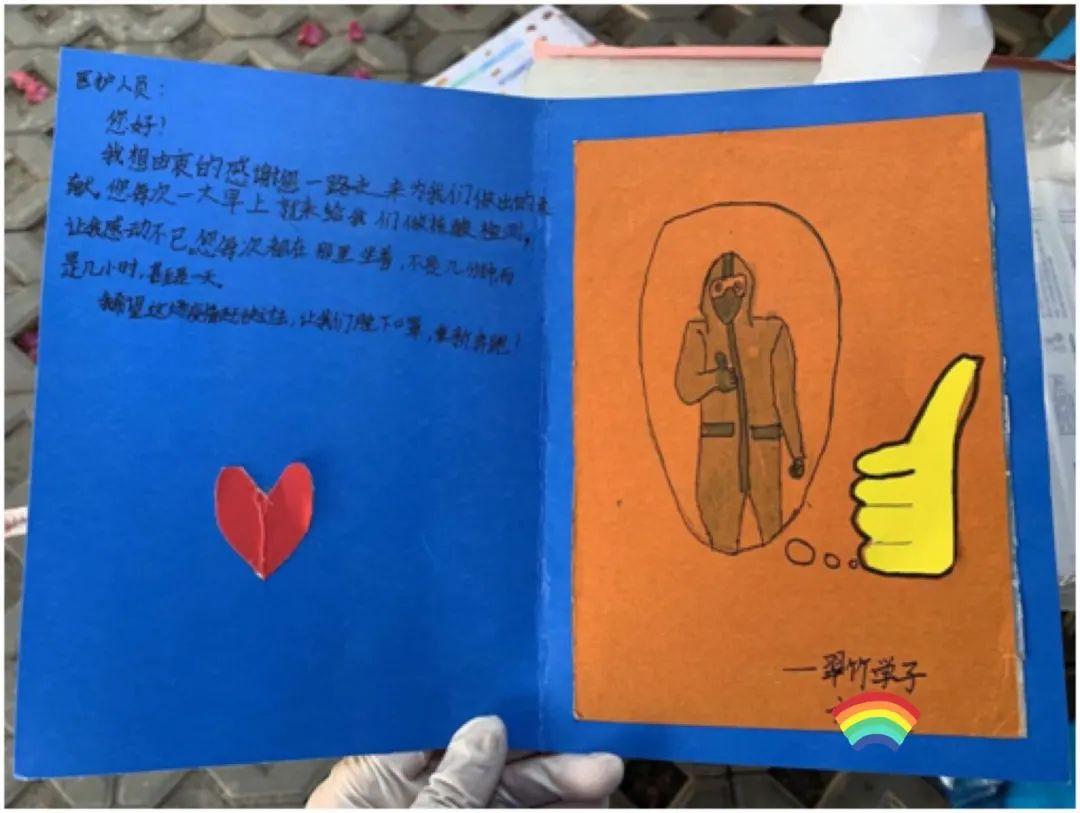 医护人员：
您好！
我想由衷的感谢您一路走来为我们做出的贡
献，您每次一大早上就来给我们做核酸检测，
让我感动不已。您每次都在那里坐着，不是几分钟，而
是几小时，甚至是一天。
我希望这场疫情赶快过去，让我们脱下口罩，重新奔跑！
—翠竹学子